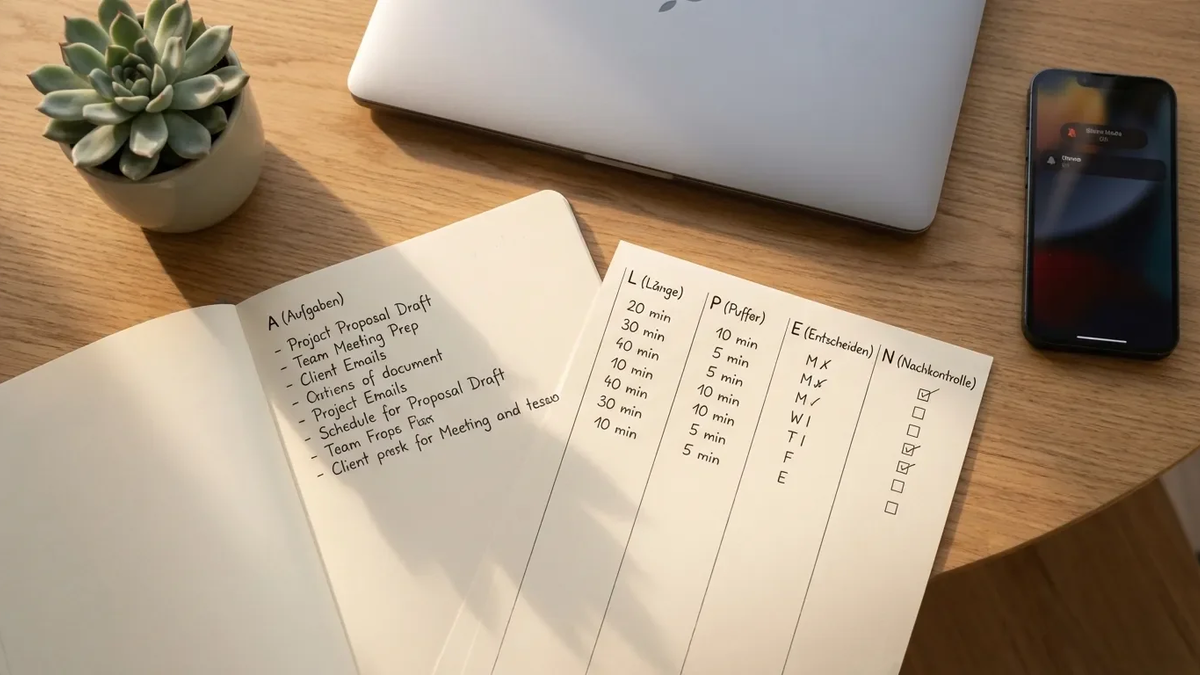 A (Aufgaben)
- Project Proposal Draft
- Team Meeting Prep
- Client Emails
- of document
- Project Emails
- Schedule for Proposal Draft
- Team Frops
- Client for Meeting and
L (Långe)
20 min
30 min
40 min
10 min
40 min
30 min
10 min
P (Puffer)
10 min
5 min
5 min
10 min
10 min
5 min
5 min
E (Entscheiden)
M ✗
M
M ✓
W I
T I
F
E
N (Nachkontrolle)
☑
☐
☐
☑
☑
☐
☐